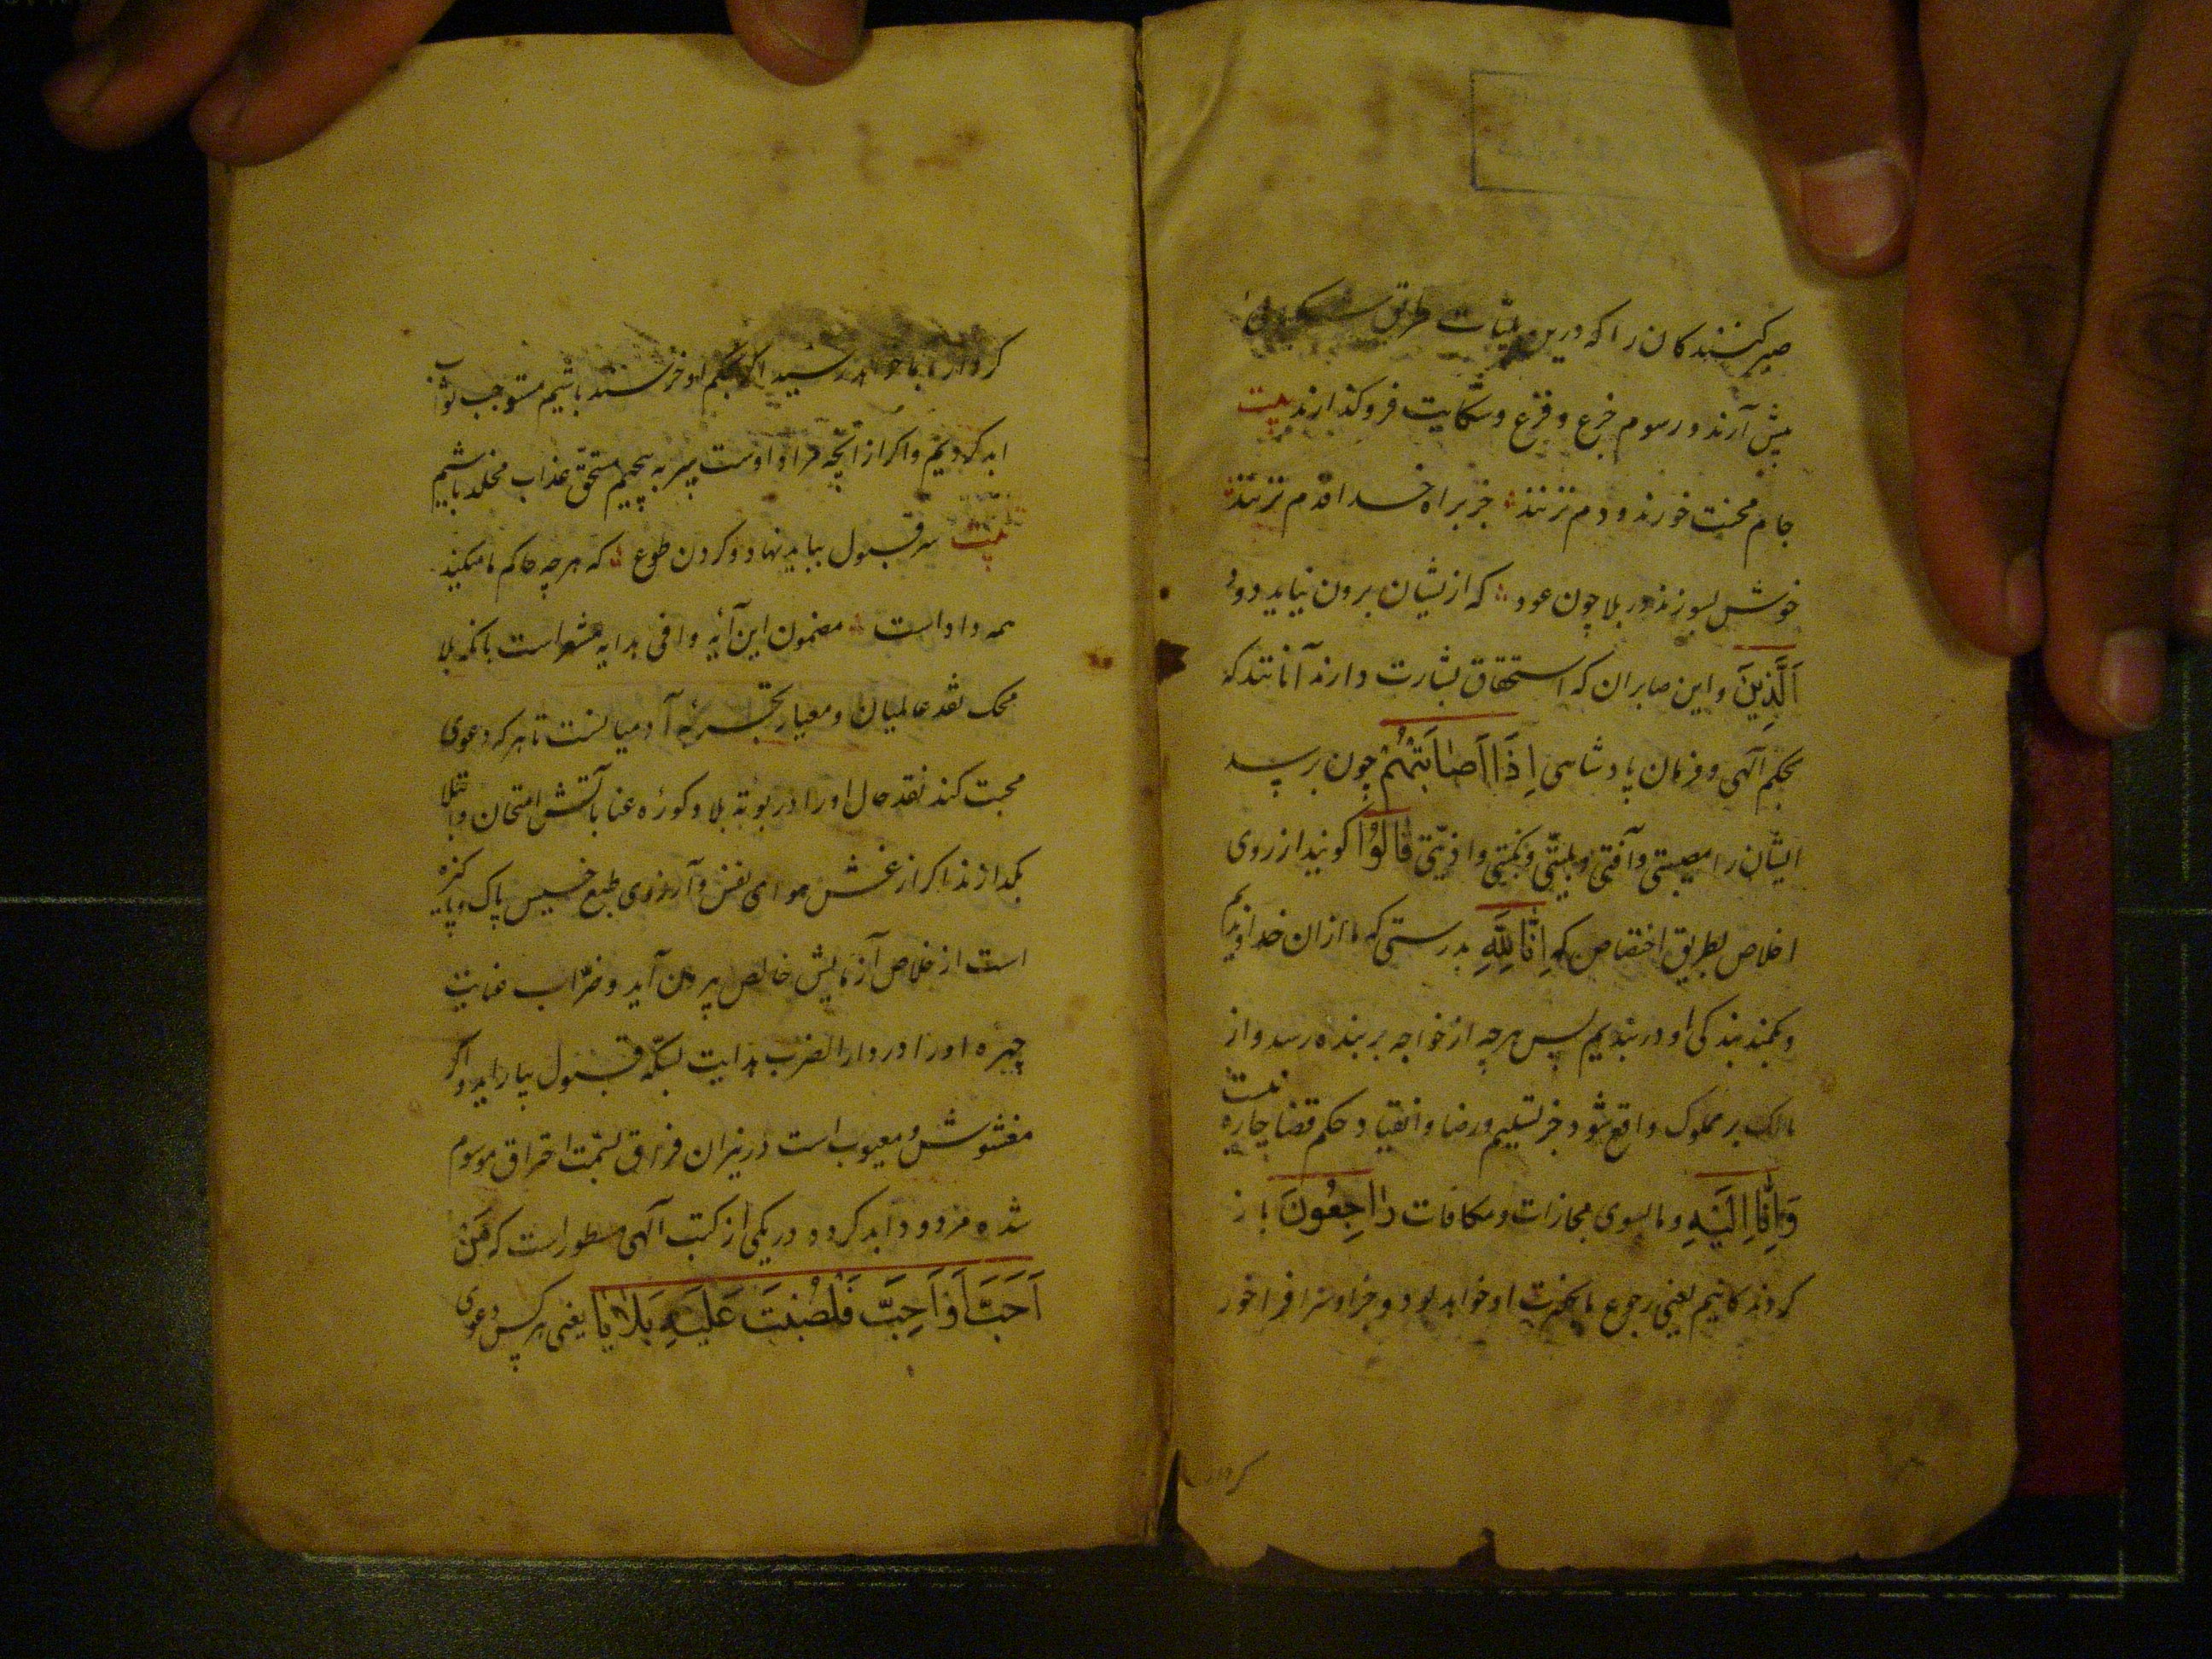 صبر کنندکان را که درین بلیّات طریق شکیبائی
پیش آرند و رسوم جزع و فزع و شکایت فروکذارند بیت
جام محنت خورند و دم نزنند جز براه خدا قدم نزنند
خوش بسوزند در بلا چون عود که ازیشان برون نیاید دود
اَلَّذِینَ و این صابران که استحقاق بشارت دارند آنانند که
بحکم آلهی و فرمان پادشاهی اِذَا اَصَابَتْهُمْ چون برسد
ایشان را مصیبتی و آفتی و بلیّتی و نکبتی و اذیّتی قَالُوْا کویند از روی
اخلاص بطریق اختصاص که اِنَّا لِلّٰهِ بدرستی که ما ازان خداوندیم
و بکمند بندکی او در بندیم پس هرچه از خواجه بر بنده رسد و از
مالک بر مملوک واقع شود جز تسلیم و رضا و انقیاد حکم قضا چاره نیست
وَاِنَّا اِلَیْهِ و ما بسوی مجازات و مکافات رَاجِعُونَ باز
کردندکانیم یعنی رجوع ما بحضرت او خواهد بود و جزا و سزا فراخور
کردار
کردار بما خواهد رسید اکر بحکم او خرسند باشیم مستوجب ثواب
ابد کردیم و اکر از آنچه مراد اوست سر به پیچیم مستحق عذاب مخلد باشیم
بیت سر قبول بباید نهاد و کردن طوع که هرچه حاکم ما میکند
همه داد است مضمون این آیه وافی هدایه مشعر است بآنکه بلا
محک نقد عالمیان و معیار تجربه آدمیانست تا هر که دعوی
محبت کند نقد حال او را در بوته بلا و کوره عنا بآتش امتحان و ابتلا
بکدازند اکر از غش هوای نفس و آرزوی طبع خسیس پاک و پاکیزه
است از خلاص آزمایش خالص بیرون آید و ضرّاب عنایت
چهره او را در دارالضرب هدایت بسکّه قبول بیاراید و اکر
مغشوش و معیوب است در نیران فراق بسمت احتراق موسوم
شده مردود ابد کردد و در یکی از کتب آلهی مسطور است که مَنْ
اَحَبَّ اَوْ اَحِبَّ فَلْصُبَّتْ عَلَیْهِ بَلَایَا یعنی هر کس دعوی